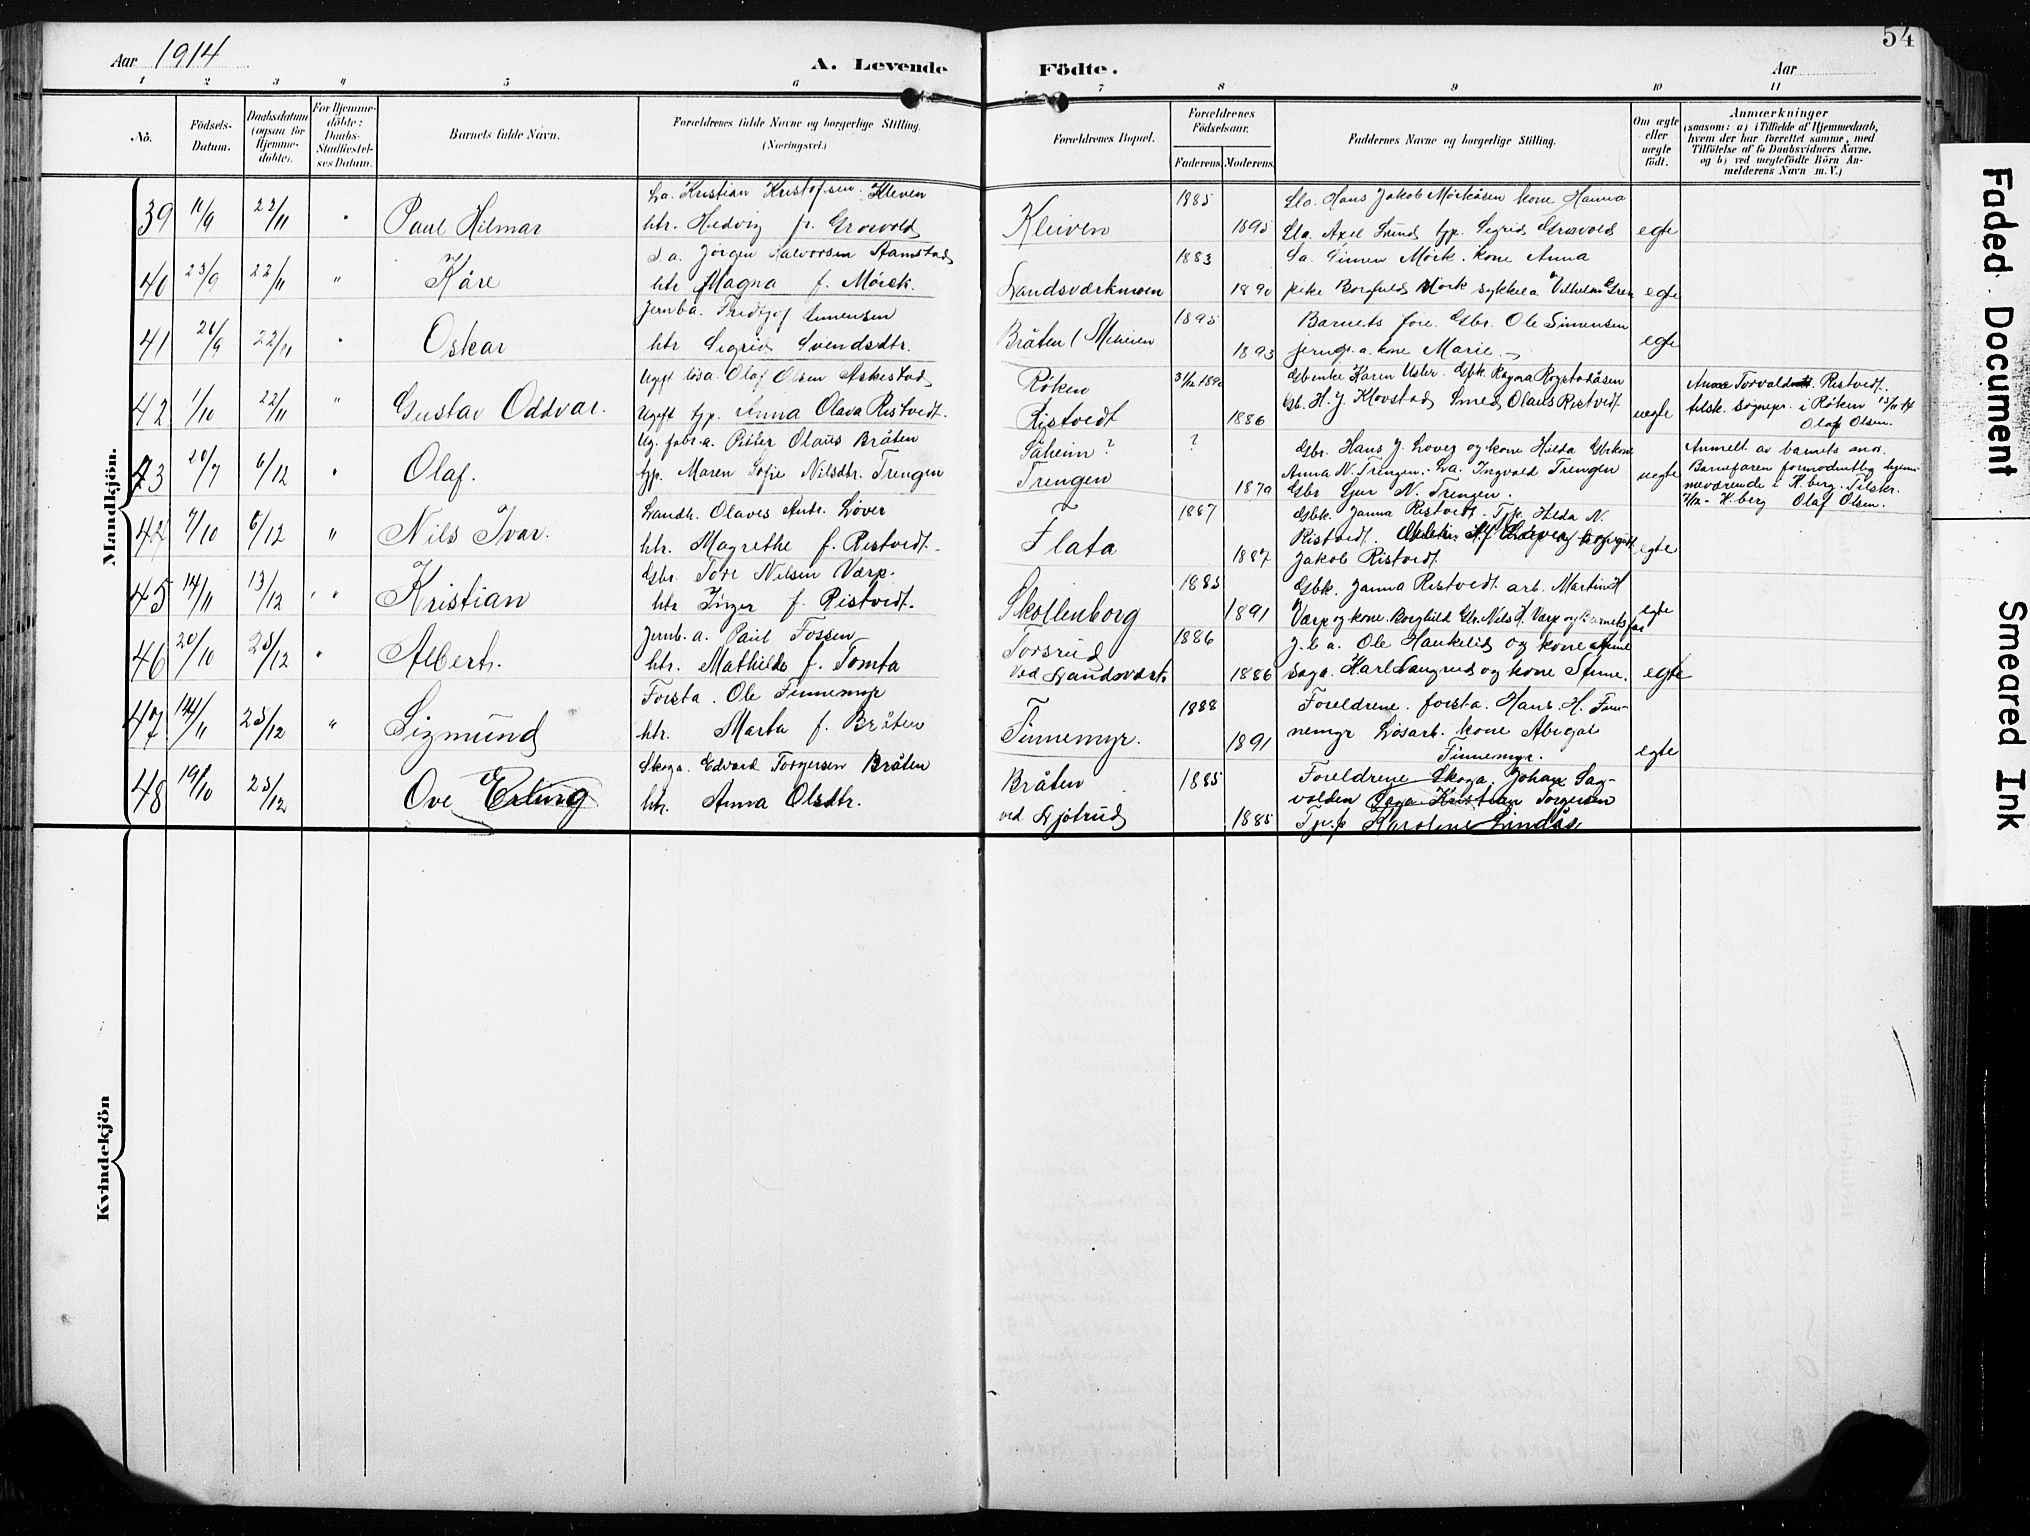 54
Aar 1914
A. Levende Födte.
Aar
1 2 3 4 5 6 7 8 9 10 11
No.
Födsels-Datum.
Daabsdatum (ogsaa for Hjemme-döbte).
For Hjemme-döbte: Daabs-Stadfæstel-ses Datum.
Barnets fulde Navn.
Forældrenes fulde Navne og borgerlige Stilling. (Næringsvei.)
Forældrenes Bopæl.
Forældrenes Födselsaar.
Faderens. Moderens.
Faddernes Navne og borgerlige Stilling.
Om ægte eller uægte födt.
Anmærkninger
(saasom: a) i Tilfælde af Hjemmedaab, hvem der har forrettet samme, med Tilföielse af to Daabsvidners Navne, og b) ved uægtefödte Börn An-melderens Navn m. V.)
Mandkjön.
39 11/9 22/11 Paul Hilmar
Kristian Kristofsen Kleven
htr. Hedvig f. Grosvold
Kleiven 1885 1895
Hans Jakob Mörkåsen kone Hanna
Axel Lund tjp. Sigrid Grosvold egte
40 23/9 22/11 " Kåre
Jørgen Halvorsen Aamstad
htr Magna f. Mörck.
Landsværkmoen 1883 1890
Simen Mörk. kone Anna
pike Borghild Mörk sykkela Vilhelm Gren egte
41 20/9 22/11 " Oskar
Jernba. Fridtjof Simensen
htr Sigrid Svendsdtr.
Bråten / Meheien 1895 1893
Barnets fore. Gbr. Ole Simensen
kone Marie egte
42 1/10 22/11 " Gustav Oddvar.
Ugift lösa. Olaf Olsen Askestad
Ugift tjp. Anna Olava Ristvedt.
Røken
Ristvedt 31/12 1890 1886
Gbenke Karen Usler. Gbk. Ragna Rogstadåsen
Gb. H. J. Klovstad Smed Olaus Ristvedt uegte
Torvald Ristvedt.
tilsk. Sognepr. i Røken 13/11 14
Olaf Olsen.
43 20/7 6/12 " Olaf.
Ug. fabr.a. Peter Olaus Bråten
tjp. Maren Sofie Nilsdtr. Trengen
Såheim?
Trengen ? 1879
Gbr. Hans J. Lover og kone Hilda Gbrkone
Anna N. Trengen. La. Ingvald Trengen
Gbr Sjur N. Trengen. uegte
Anmeldt av barnets mor.
Barnefaren formodentlig hjem-
meværende i K.berg. Tilskr.
7/12 - K.berg Olaf Olsen.
7/10 6/12 " Nils Ivar.
Landh. Olaves Antr. Löver
htr. Magrethe f. Ristvedt.
Flata 1867 1887
Gbk. Janna Ristvedt. Tjp. Hilda N.
Ristvedt.
Jakob Ristvedt. egte
45 14/11 13/12 " Kristian
Gbr. Tore Nilsen Værp.
htr Inger f. Ristvedt.
Skollenborg 1885 1891
Gbk. Janna Ristvedt. arb. Martin H
Værp og kone Borghild Gbr. Nils H. Værp og Barnets far egte
46 20/10 25/12 " Albert.
Jernb. a. Paul Fossen
htr. Mathilde f. Tomta
Torsrud
ved Landsværk 1886 1886
J.b.a. Ole Haukelid og kone Anne
Saga. Karl Langrud og kone Stine. egte
47 14/11 25/12 " Sigmund
Forsta. Ole Finnemyr
htr. Marta f. Bråten
Finnemyr. 1888 1891
Foreldrene. forsta. Hans H. Fin-
nemyr Lösarb. kone Abigal
Finnemyr. egte
48 19/10 25/12 Ove Erling
Skoga. Edvard Torgersen Bråten
htr. Anna Olsdtr.
Bråten
ved Gjötrud 1885 1885
Foreldrene Skoga. Johan Sag-
volden Saga Kristian Torgersen
Tjp. Karoline Lindås
Kvindekjön
Faded Document Smeared Ink